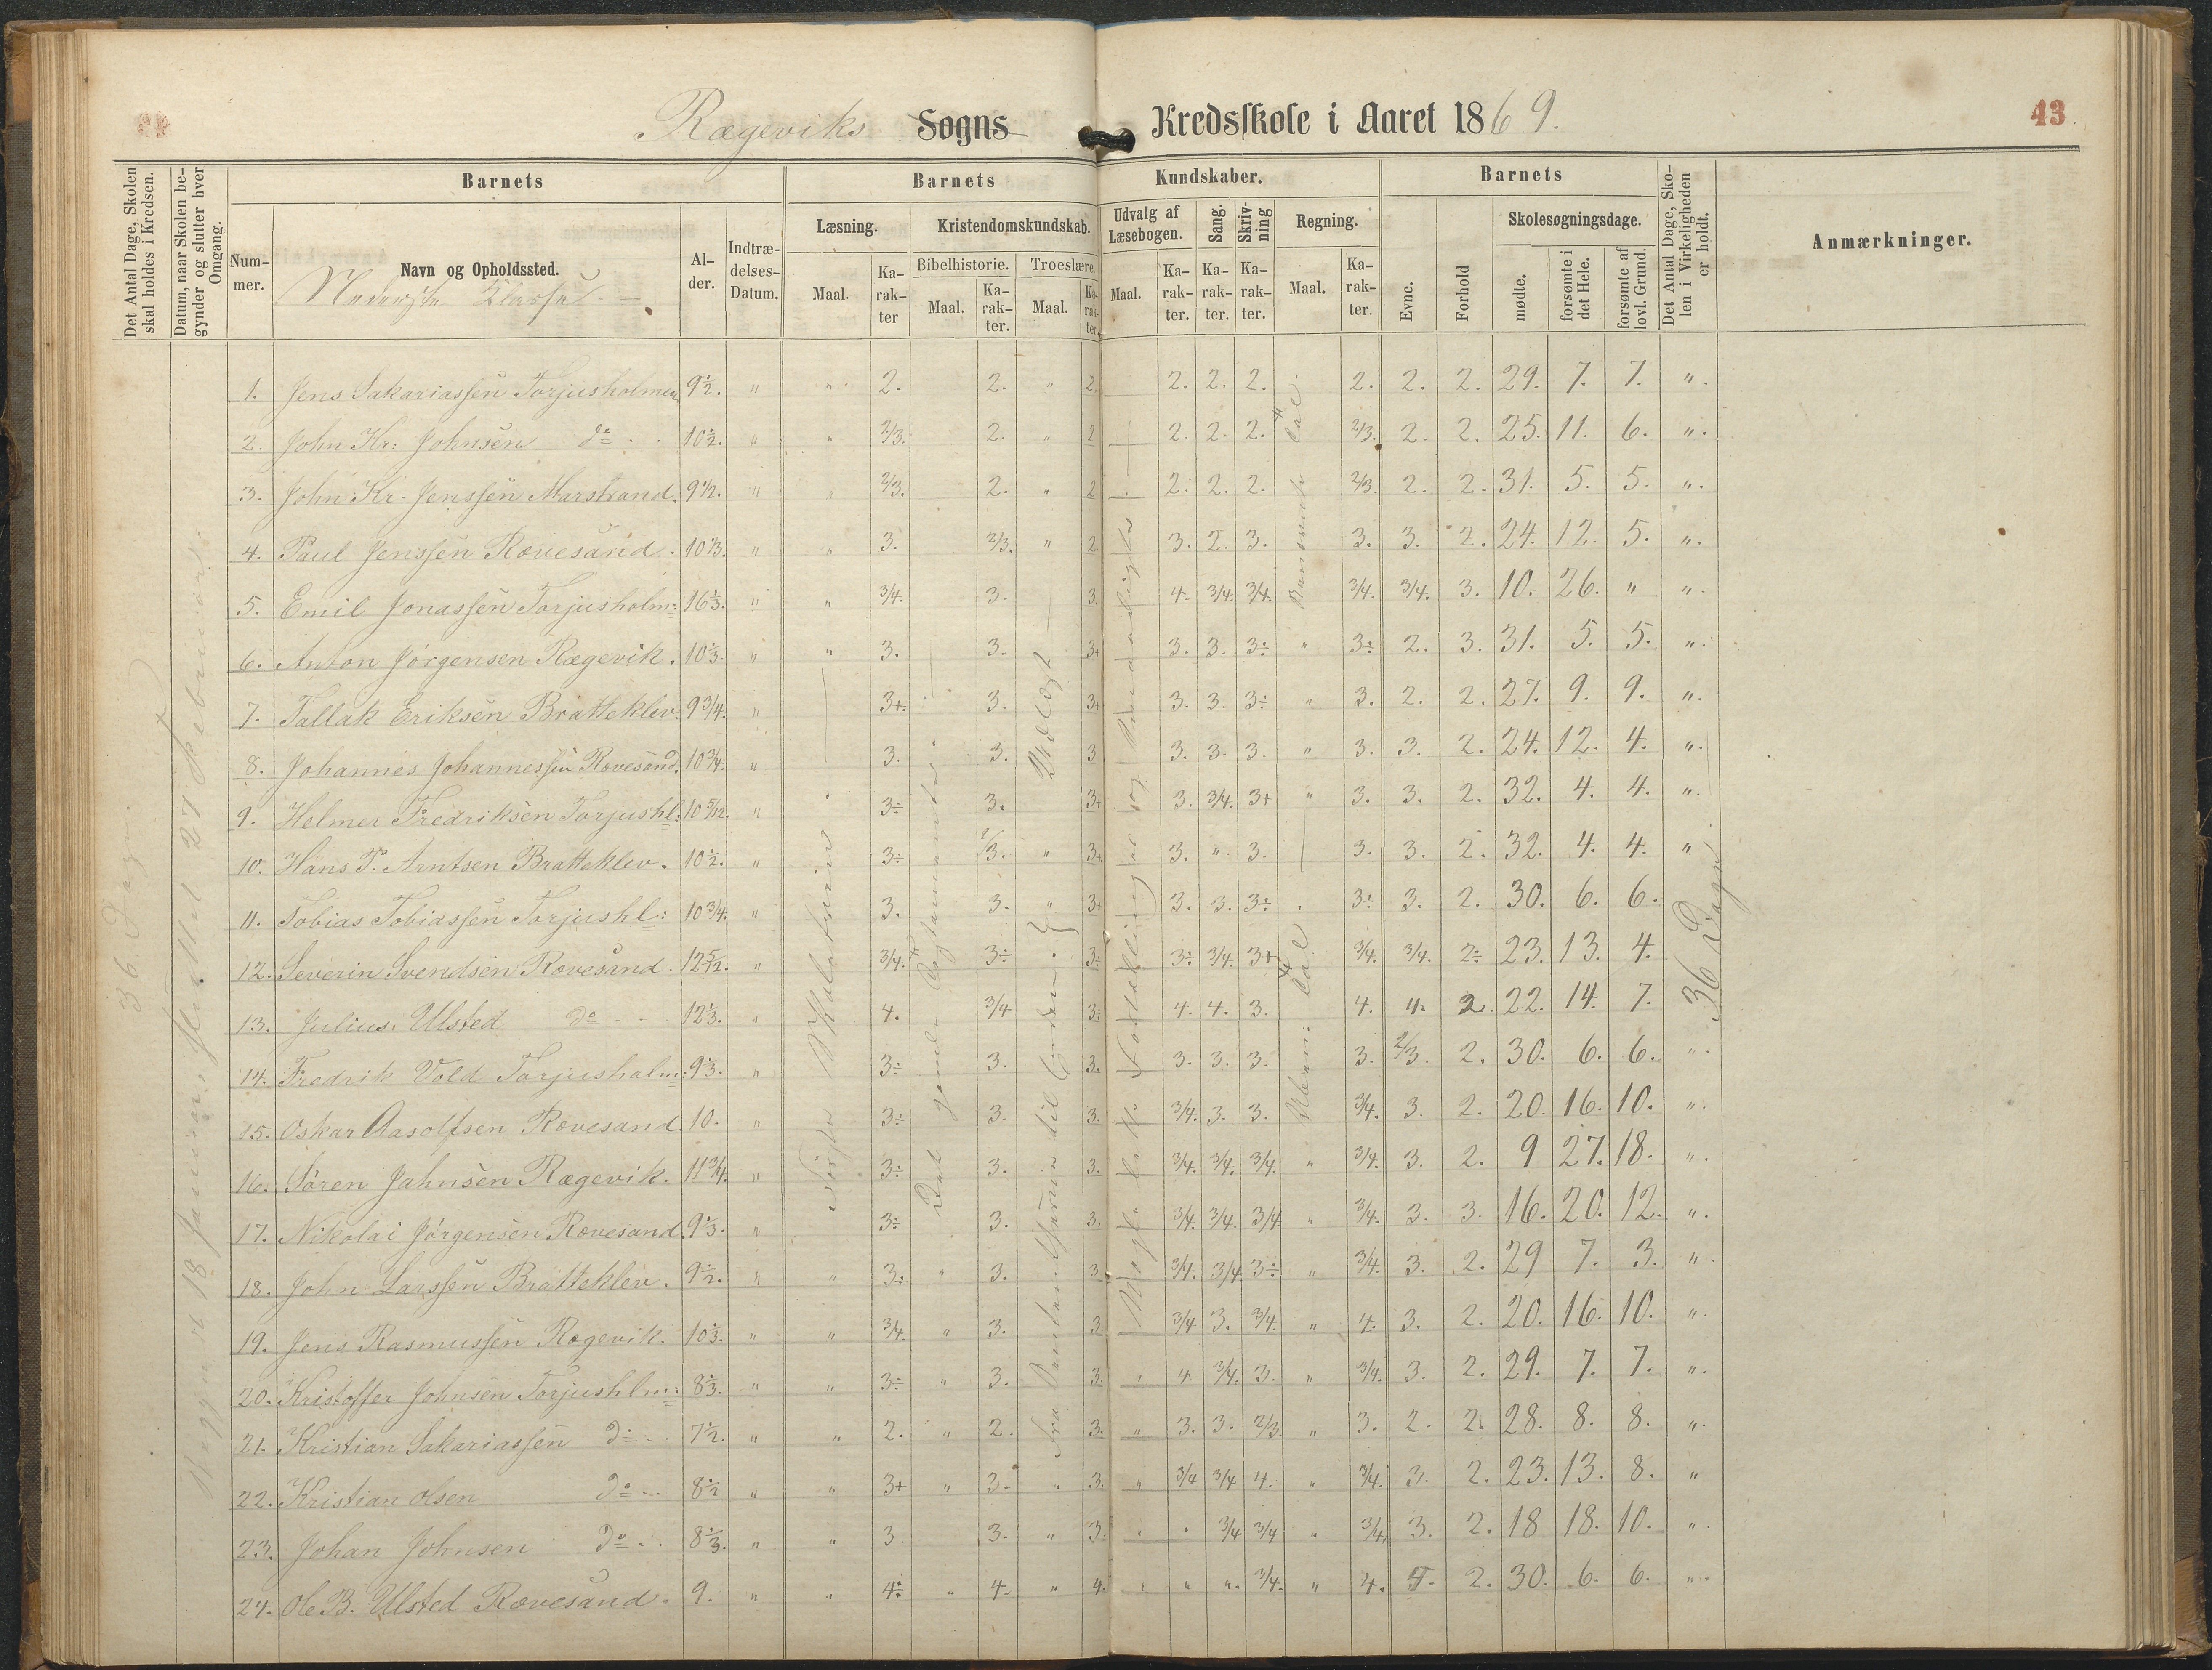 Rægeviks Sogns Kredsskole i Aaret 1869.
43
Det Antal Dage, Skolen skal holdes i Kredsen.
Datum, naar Skolen begynder og slutter hver Omgang.
Barnets
Barnets Kundskaber.
Barnets
Det Antal Dage, Skolen i Virkeligheden er holdt.
Anmærkninger.
Nummer.
Navn og Opholdssted.
Nederste Klasse.
Alder.
Indtrædelses-Datum.
Læsning.
Kristendomskundskab.
Udvalg af Læsebogen.
Sang.
Skrivning
Regning.
Evne.
Forhold
Skolesøgningsdage.
Bibelhistorie.
Troeslære.
Maal. Karakter Maal. Karakter. Maal. Karakter. Maal. Karakter. Karakter. Karakter. Maal. Karakter.
mødte.
forsømte i det Hele.
forsømte af lovl. Grund.
36 Dage
18 Januar 27 Februar
36 Dage
1. Jens Sakariassen Torjusholmen 9 1/2. " " 2. 2. " 2. 2. 2. 2. 2. 2. 2. 29. 7. 7. ".
2. John Kr: Johnsen do 10 1/2. " " 2/3. 2. " 2 2. 2. 2. 2/3. 2. 2. 25. 11. 6. ".
3. John Kr. Jenssen Marstrand. 9 1/2. " " 2/3. 2. " 2 2. 2. 2. 2/3. 2. 2. 31. 5. 5. ".
4. Paul Jenssen Rævesand. 10 1/3. " " 3. 2/3. " 2 3. 2. 3. 3. 3. 2. 24. 12. 5. ".
5. Emil Jonassen Torjusholm: 16 1/3. " " 3/4. 3. 3. 4. 3/4. 3/4. 3/4. 3/4. 3. 10. 26. " ".
6. Anton Jørgensen Rægevik. 10 1/3. " " 3. 3. 3+ 3. 3. 3÷ " 3÷ 2. 3. 31. 5. 5. ".
7. Tallak Eriksen Bratteklev. 9 3/4. " 3+. 3. 3+ 3. 3. 3÷ " 3. 2. 2. 27. 9. 9. ".
8. Johannes Johannessen Rævesand. 10 3/4. " 3. 3. 3 3. 3. 3. " 3. 3. 2. 24. 12. 4. ".
9. Helmer Fredriksen Torjushl: 10 5/12. " 3÷ 3. 3+ 3. 3/4. 3+ " 3. 3. 2. 32. 4. 4. ".
10. Hans P. Arntsen Bratteklev. 10 1/2. " 3÷ 2/3. " 3+ 3. ". 3. 3. 3. 2. 32. 4. 4. ".
11. Tobias Tobiassen Torjushl: 10 3/4. " 3. 3. " 3+ 3. 3. 3÷ 3÷ 3. 2. 30. 6. 6.
12. Severin Svendsen Rævesand. 12 5/12. " 3/4. 3÷ 3÷ 3÷ 3/4. 3+ 3/4. 3/4. 2÷ 23. 13. 4.
13. Julius Ulsted do 12 1/3. " 4. 3/4 3÷ 4. 4. 3. 4. 4. 2. 22. 14. 7.
14. Fredrik Vold Torjusholm: 9 1/3. " 3÷ 3. 3. 3. 3. 3. 3. 2/3. 2. 30. 6. 6. "
15. Oskar Aasolfsen Rævesand. 10. " 3÷ 3. 3. 3/4. 3. 3. 3/4. 3. 2. 20. 16. 10. ".
16. Søren Jahnsen Rægevik. 11 3/4. " 3÷ 3. 3. 3/4. 3/4. 3/4. " 3/4. 3. 2. 9 27. 18. ".
17. Nikolai Jørgensen Rævesand. 9 1/3. " 3÷ 3. 3. 3/4. 3/4. 3/4 " 3/4. 3. 3. 16. 20. 12. ".
18. John Larssen Bratteklev. 9 1/2. " " 3÷ " 3. 3 3/4. 3/4 3÷ " 3/4. 3. 2. 29 7. 3. ".
19. Jens Rasmussen Rægevik. 10 1/3. " " 3/4. " 3. 3 3/4 3. 3/4. " 4. 3. 2. 20. 16. 10. ".
20. Kristoffer Johnsen Torjushlm: 8 1/3. " " 3÷ " 3. 3. " 4. 3/4. 3. " 3/4. 3. 2. 29. 7. 7. ".
21. Kristian Sakariassen do 7 1/2. " " 2. " 2. 3. " 3. 3. 2/3. " 3. 2. 2. 28. 8. 8. ".
22. Kristian Olsen do 8 1/2 " " 3+ " 3. " 3. " 3/4 3/4 4. " 3/4. 3. 2. 23. 13. 8. "
23. Johan Johnsen do 8 1/3. " " 3. 3. " 3. " " 3/4 3/4 " 3/4. 3. 2. 18 18. 10. ".
24. Ole B. Ulsted Rævesand. 9. " " 4÷ " 4. " 4. " " ". 3/4. " 4. 4. 2. 30. 6. 6. ".